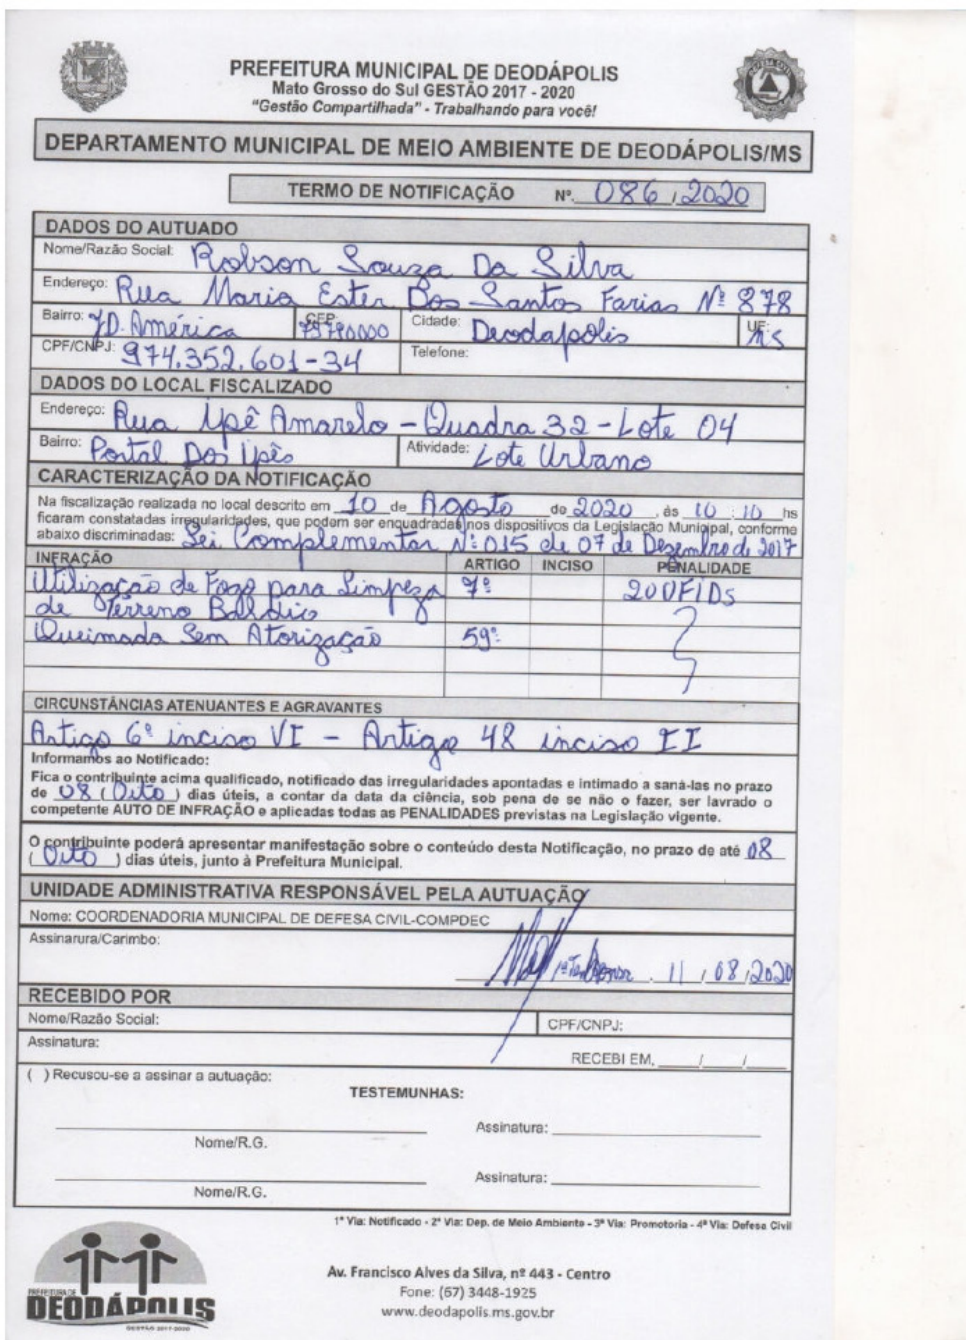 PREFEITURA MUNICIPAL DE DEODÁPOLIS
Mato Grosso do Sul GESTÃO 2017 - 2020
"Gestão Compartilhada" - Trabalhando para você!
DEFESA CIVIL
DEPARTAMENTO MUNICIPAL DE MEIO AMBIENTE DE DEODÁPOLIS/MS
TERMO DE NOTIFICAÇÃO Nº. 086 / 2020
DADOS DO AUTUADO
Nome/Razão Social: Robson Souza Da Silva
Endereço: Rua Maria Ester Dos Santos Farias Nº 878
Bairro: JD. América CEP: 79790000 Cidade: Deodapolis UF: MS
CPF/CNPJ: 974.352.601-34 Telefone:
DADOS DO LOCAL FISCALIZADO
Endereço: Rua Ipê Amarelo - Quadra 32 - Lote 04
Bairro: Portal Dos Ipês Atividade: Lote Urbano
CARACTERIZAÇÃO DA NOTIFICAÇÃO
Na fiscalização realizada no local descrito em 10 de Agosto de 2020, às 10:10 hs
ficaram constatadas irregularidades, que podem ser enquadradas nos dispositivos da Legislação Municipal, conforme
abaixo discriminadas: Lei Complementar Nº 015 de 07 de Dezembro de 2017
INFRAÇÃO ARTIGO INCISO PENALIDADE
Utilização de Fogo para Limpeza 7º 20 UFIDs
de Terreno Baldio
Queimada Sem Atorização 59º
CIRCUNSTÂNCIAS ATENUANTES E AGRAVANTES
Artigo 6º inciso VI - Artigo 48 inciso II
Informamos ao Notificado:
Fica o contribuinte acima qualificado, notificado das irregularidades apontadas e intimado a saná-las no prazo
de 08 (Oito) dias úteis, a contar da data da ciência, sob pena de se não o fazer, ser lavrado o
competente AUTO DE INFRAÇÃO e aplicadas todas as PENALIDADES previstas na Legislação vigente.
O contribuinte poderá apresentar manifestação sobre o conteúdo desta Notificação, no prazo de até 08
(Oito) dias úteis, junto à Prefeitura Municipal.
UNIDADE ADMINISTRATIVA RESPONSÁVEL PELA AUTUAÇÃO
Nome: COORDENADORIA MUNICIPAL DE DEFESA CIVIL-COMPDEC
Assinarura/Carimbo:
11 / 08 / 2020
RECEBIDO POR
Nome/Razão Social: CPF/CNPJ:
Assinatura:
RECEBI EM, ___/___/___
( ) Recusou-se a assinar a autuação:
TESTEMUNHAS:
Assinatura:
Nome/R.G.
Assinatura:
Nome/R.G.
1ª Via: Notificado - 2ª Via: Dep. de Meio Ambiente - 3ª Via: Promotoria - 4ª Via: Defesa Civil
PREFEITURA DE
DEODÁPOLIS
GESTÃO 2017-2020
Av. Francisco Alves da Silva, nº 443 - Centro
Fone: (67) 3448-1925
www.deodapolis.ms.gov.br